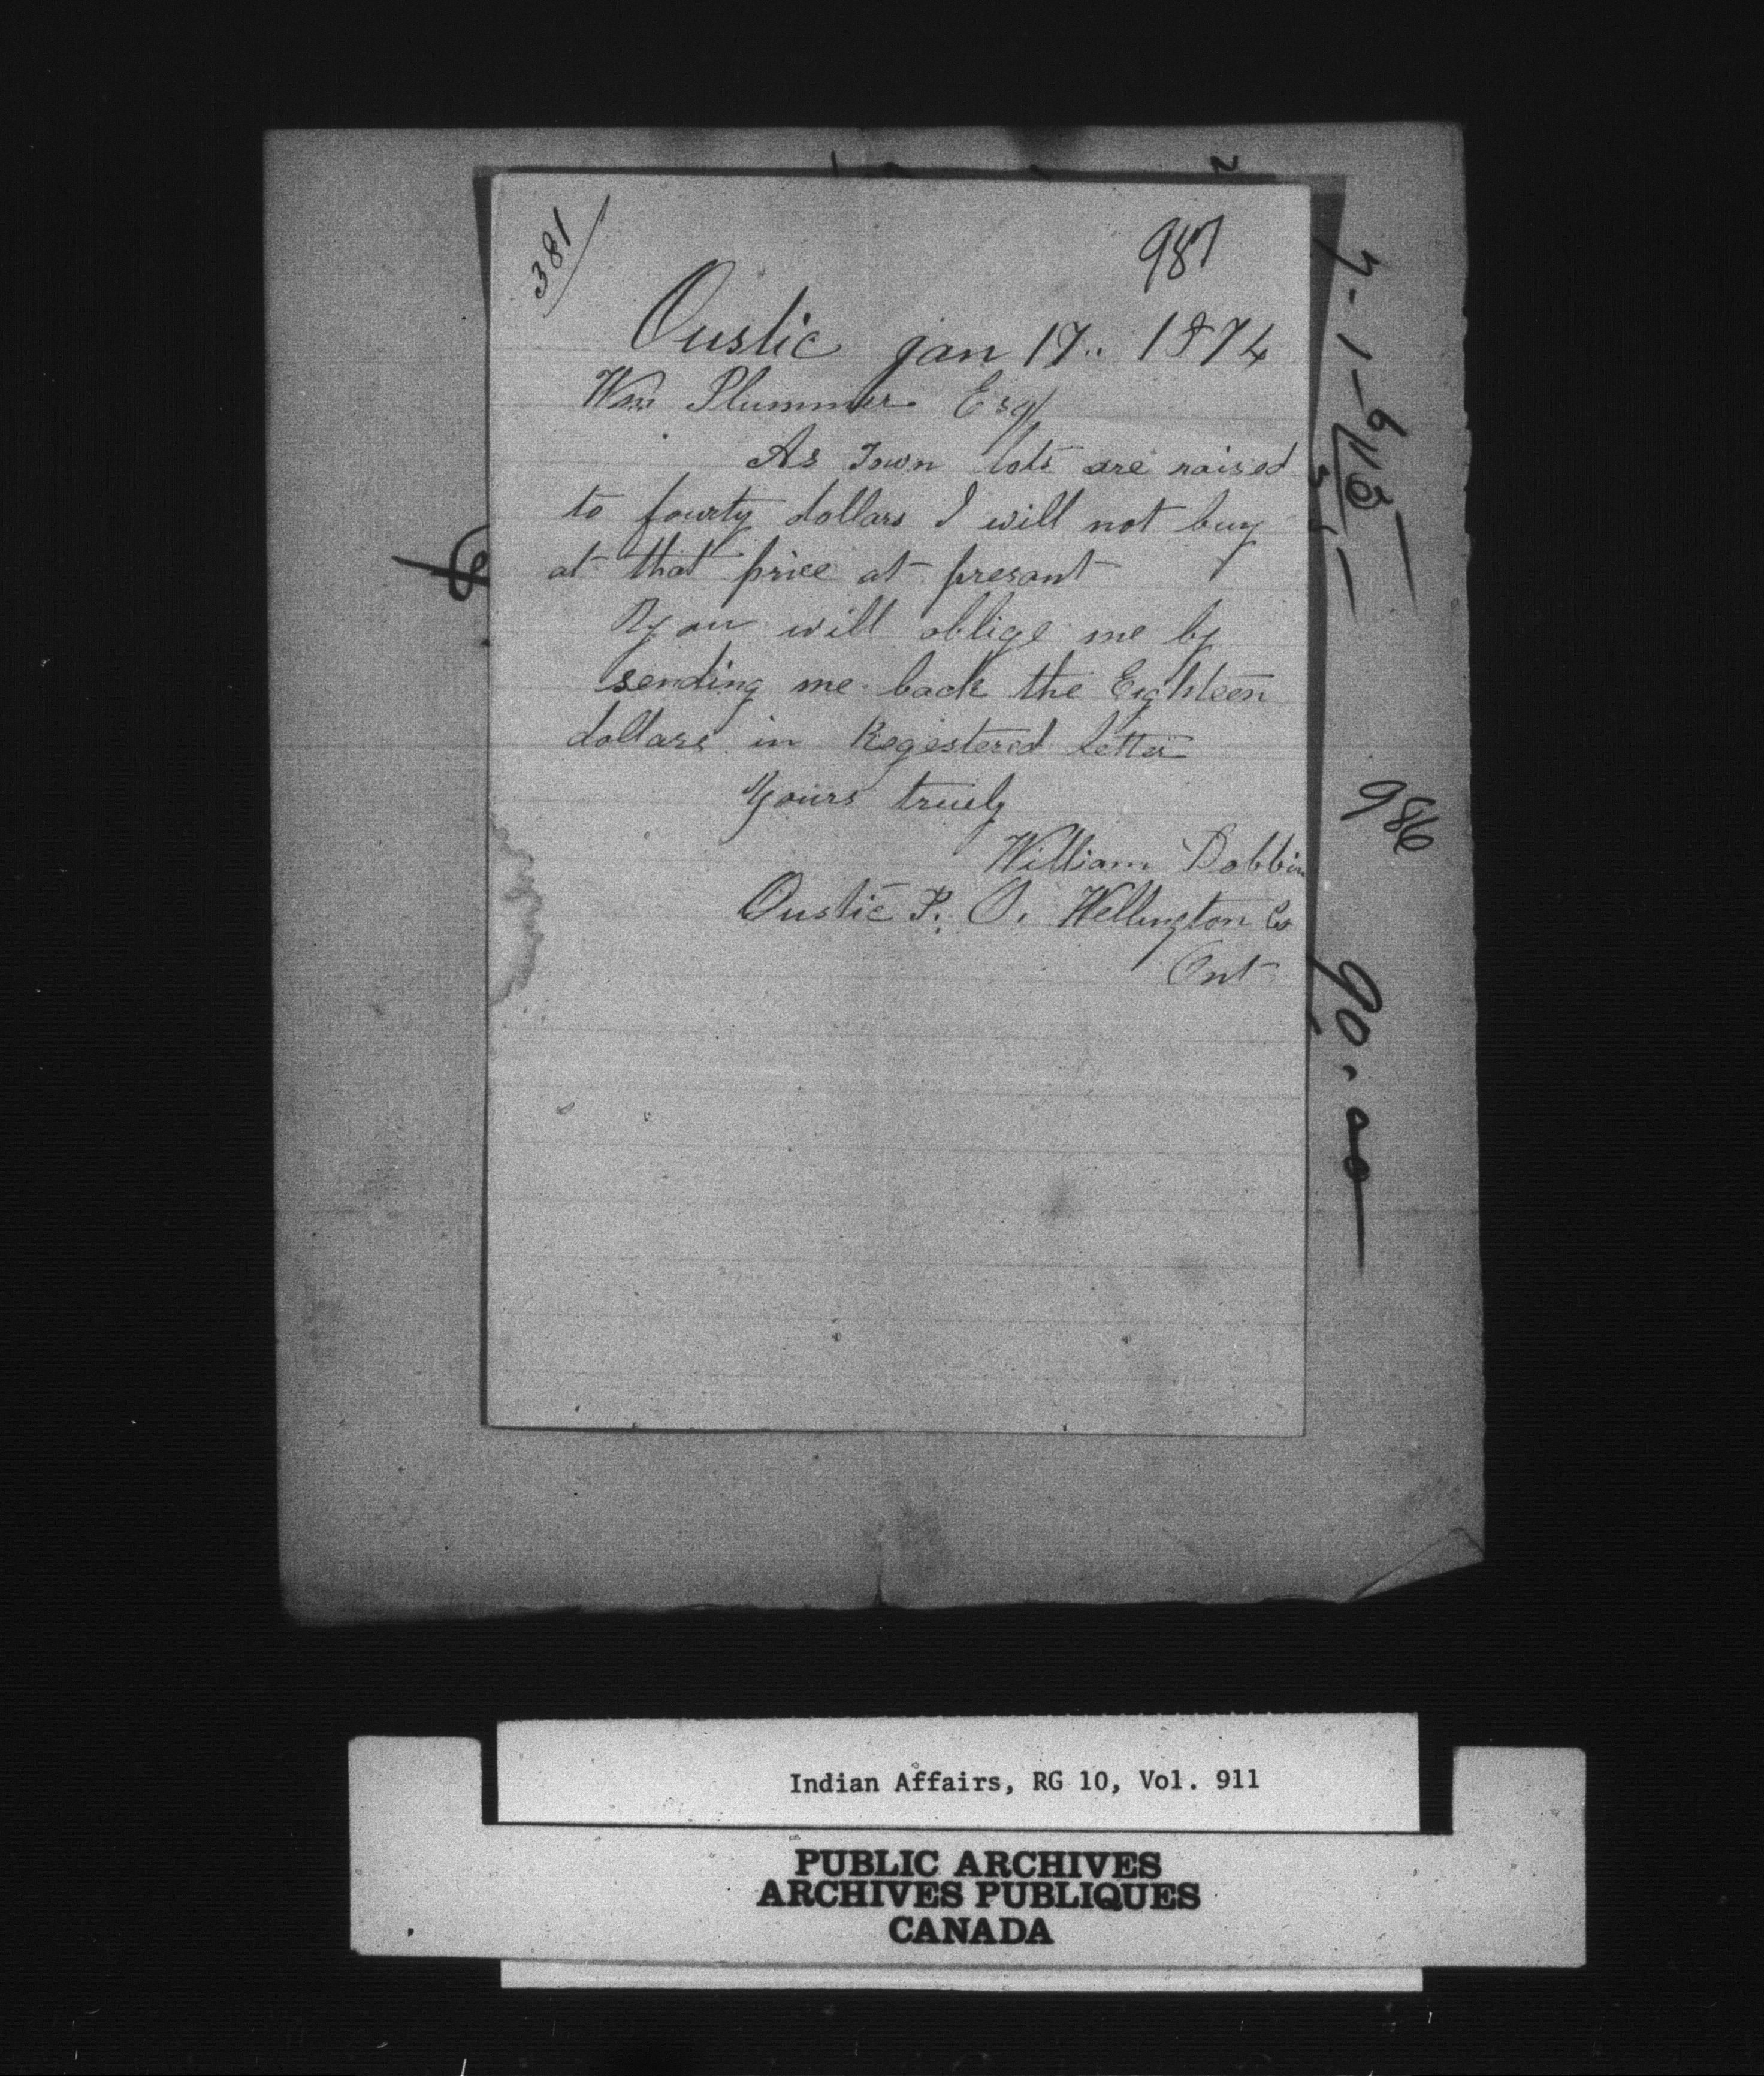 381
987
Oustic jan 17.. 1874
Wm Plummer Esq
As Town lots are raised
to fourty dollars I will not buy
at that price at presant
You will oblige me by
sending me back the Eighteen
dollars in Registered letter
Yours truely
William Dobbin
Oustic P. O. Wellington Co
Ont
986
90.00
Indian Affairs, RG 10, Vol. 911
PUBLIC ARCHIVES
ARCHIVES PUBLIQUES
CANADA